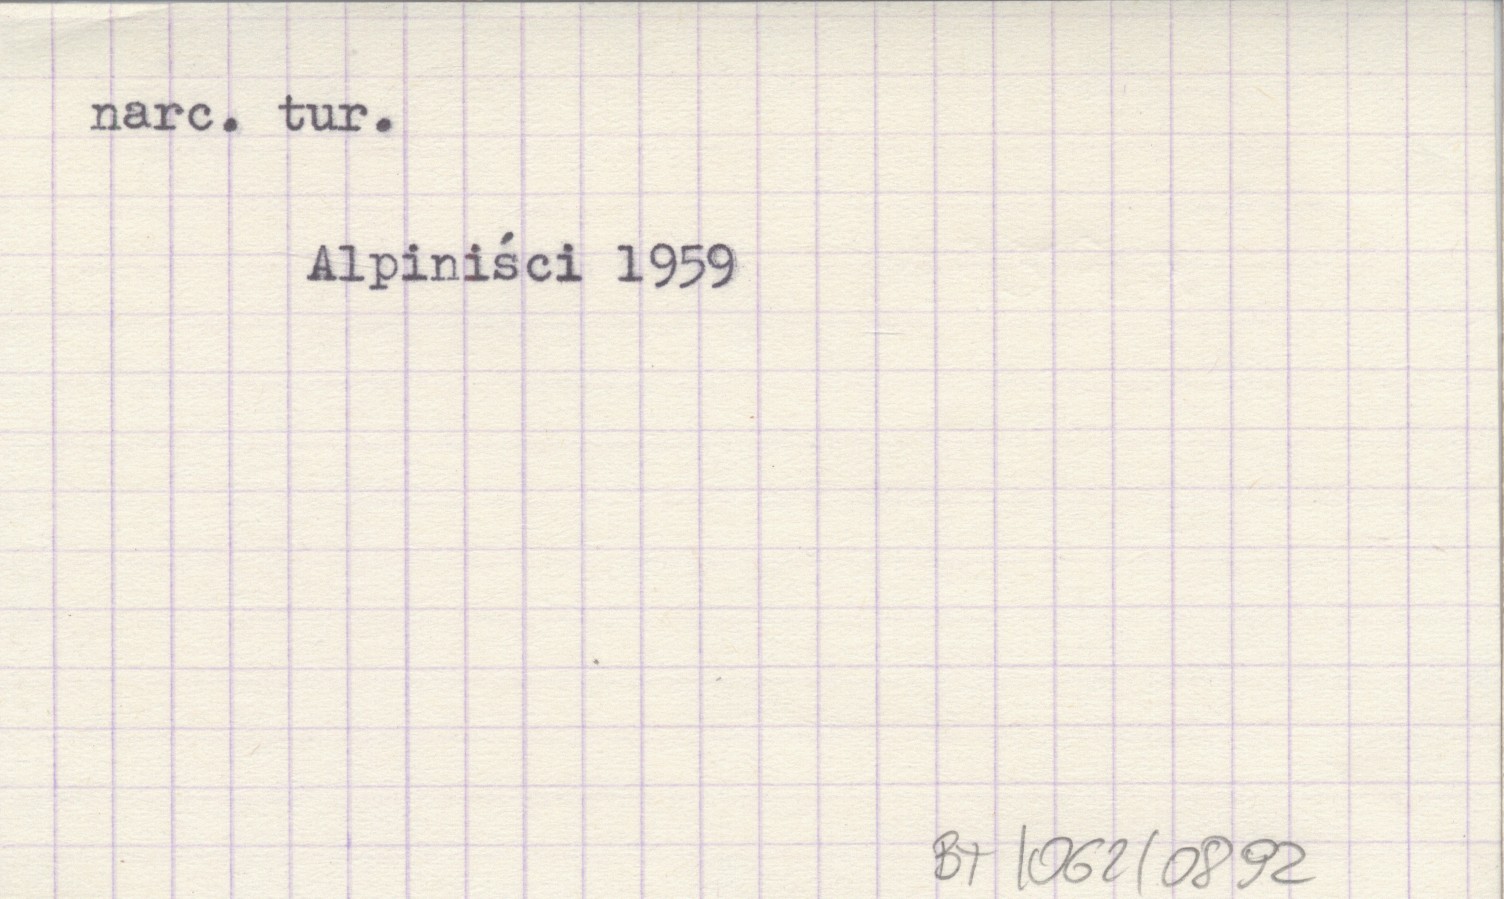 narc. tur.
Alpiniści 1959
BT/062/0892